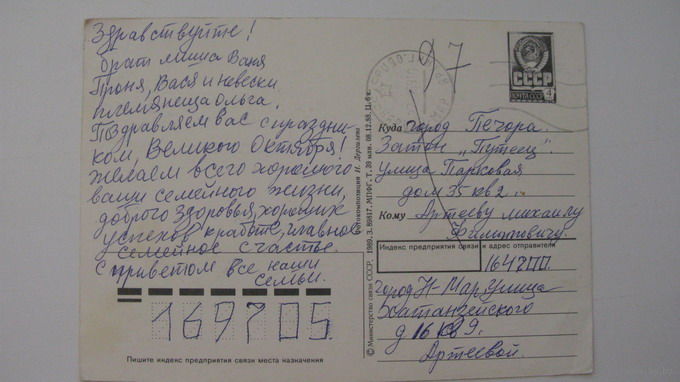 Здравствуйте!
брат миша Ваня
Проня, Вася и невески
племянеца Ольга.
Поздравляем вас с праздни-
ком, Великого Октября!
желаем всего хорошего
ваши семейного жизни,
доброго здоровья, хороших
успехов к работе, главное
семейное счастье.
с приветом все наши
семьи.
169705
Пишите индекс предприятия связи места назначения
Фотокомпозиция И. Дергилева
© Министерство связи СССР, 1989. З. 89817. МПФГ. Т. 20 млн. 08.12.88. Ц. 6 к.
97
СССР
ПОЧТА СССР
4
Куда город Печора.
Затон „Путеец"
улица Парковая
дом 35 кв 2.
Кому Артееву михаилу
Филиповичу.
Индекс предприятия связи и адрес отправителя
164700.
город Н-Мар улица
Хатанзейского
д 16 кв 9.
Артеевой.